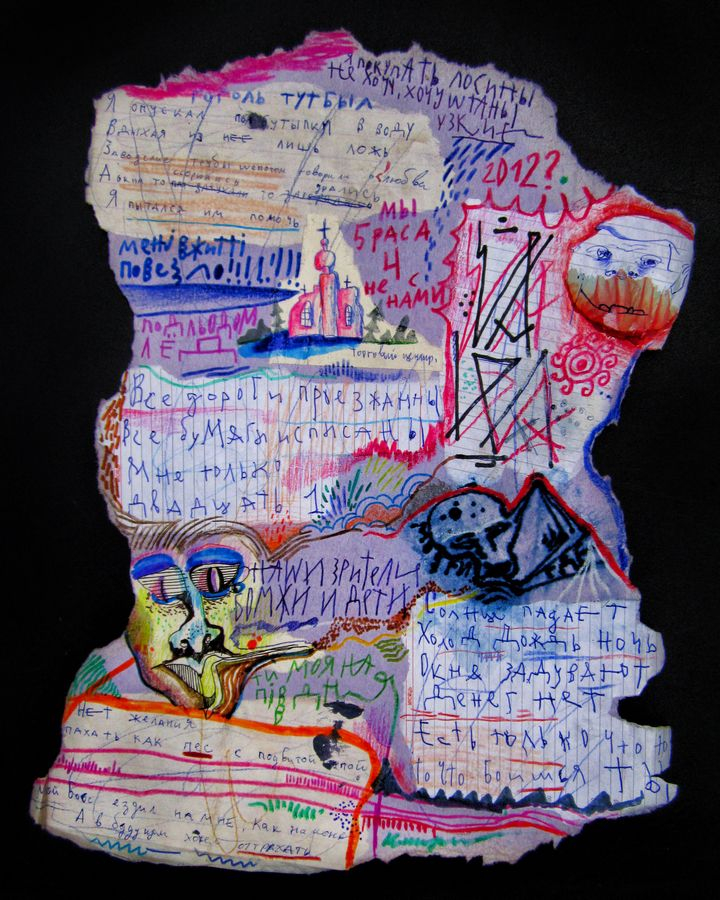 Я покупать лосины
не хочу, хочу штаны
узкие
Гоголь тут был
Я опускал бутылки в воду
Вдыхая из нее лишь ложь
Заводские трубы шепотом говорили о любви
А быки то сбрились то дрались
Я пытался им помочь
2012?
мы
5 раса
4
не с
нами
мені в житті
повезло!!!!!!!!
подільодом
лё
торговий центр.
Все дороги приезжанны
Все бумаги исписаны
Мне только
двадцать 1
наши зрители
бомжи и дети
ти моя на
півдні
Солнца падает
Холод дождь ночь
Окна задувают
Денег нет
Есть только что то
то что боишься т
нет желания
пахать как пес с подбитой лапой
мой босс ездил на мне, как на коне
А в будущем хотел оттрахать